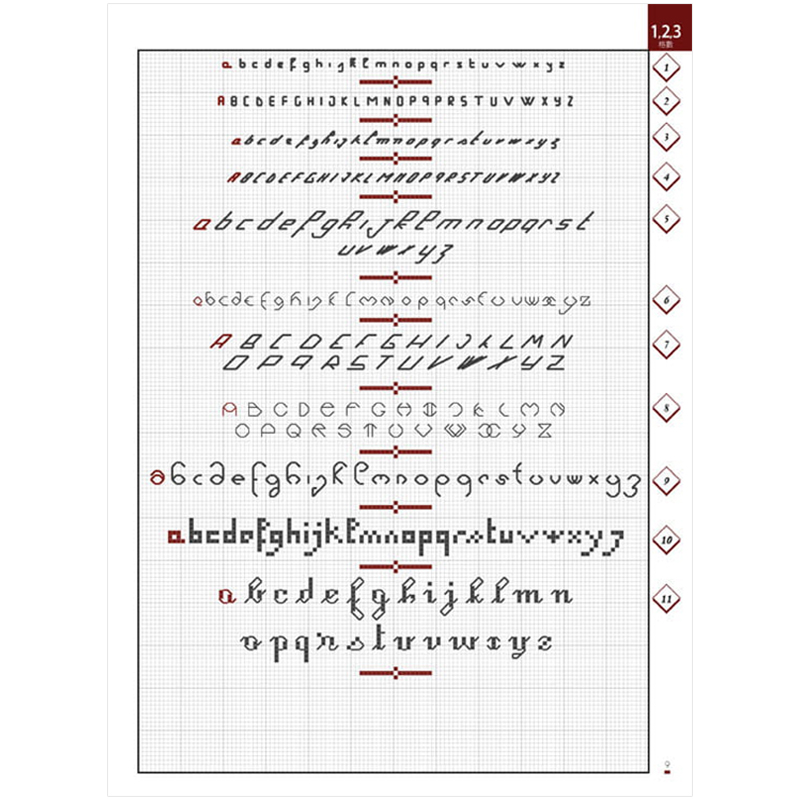 1,2,3
格數
a b c d e f g h i j k l m n o p q r s t u v w x y z 1
A B C D E F G H I J K L M N O P Q R S T U V W X Y Z 2
a b c d e f g h i j k l m n o p q r s t u v w x y z 3
A B C D E F G H I J K L M N O P Q R S T U V W X Y Z 4
a b c d e f g h i j k l m n o p q r s t 5
u v w x y z
a b c d e f g h i j k l m n o p q r s t u v w x y z 6
A B C D E F G H I J K L M N 7
O P Q R S T U V W X Y Z
A B C D E F G H I J K L M N 8
O P Q R S T U V W X Y Z
a b c d e f g h i j k l m n o p q r s t u v w x y z 9
a b c d e f g h i j k l m n o p q r s t u v w x y z 10
a b c d e f g h i j k l m n 11
o p q r s t u v w x y z